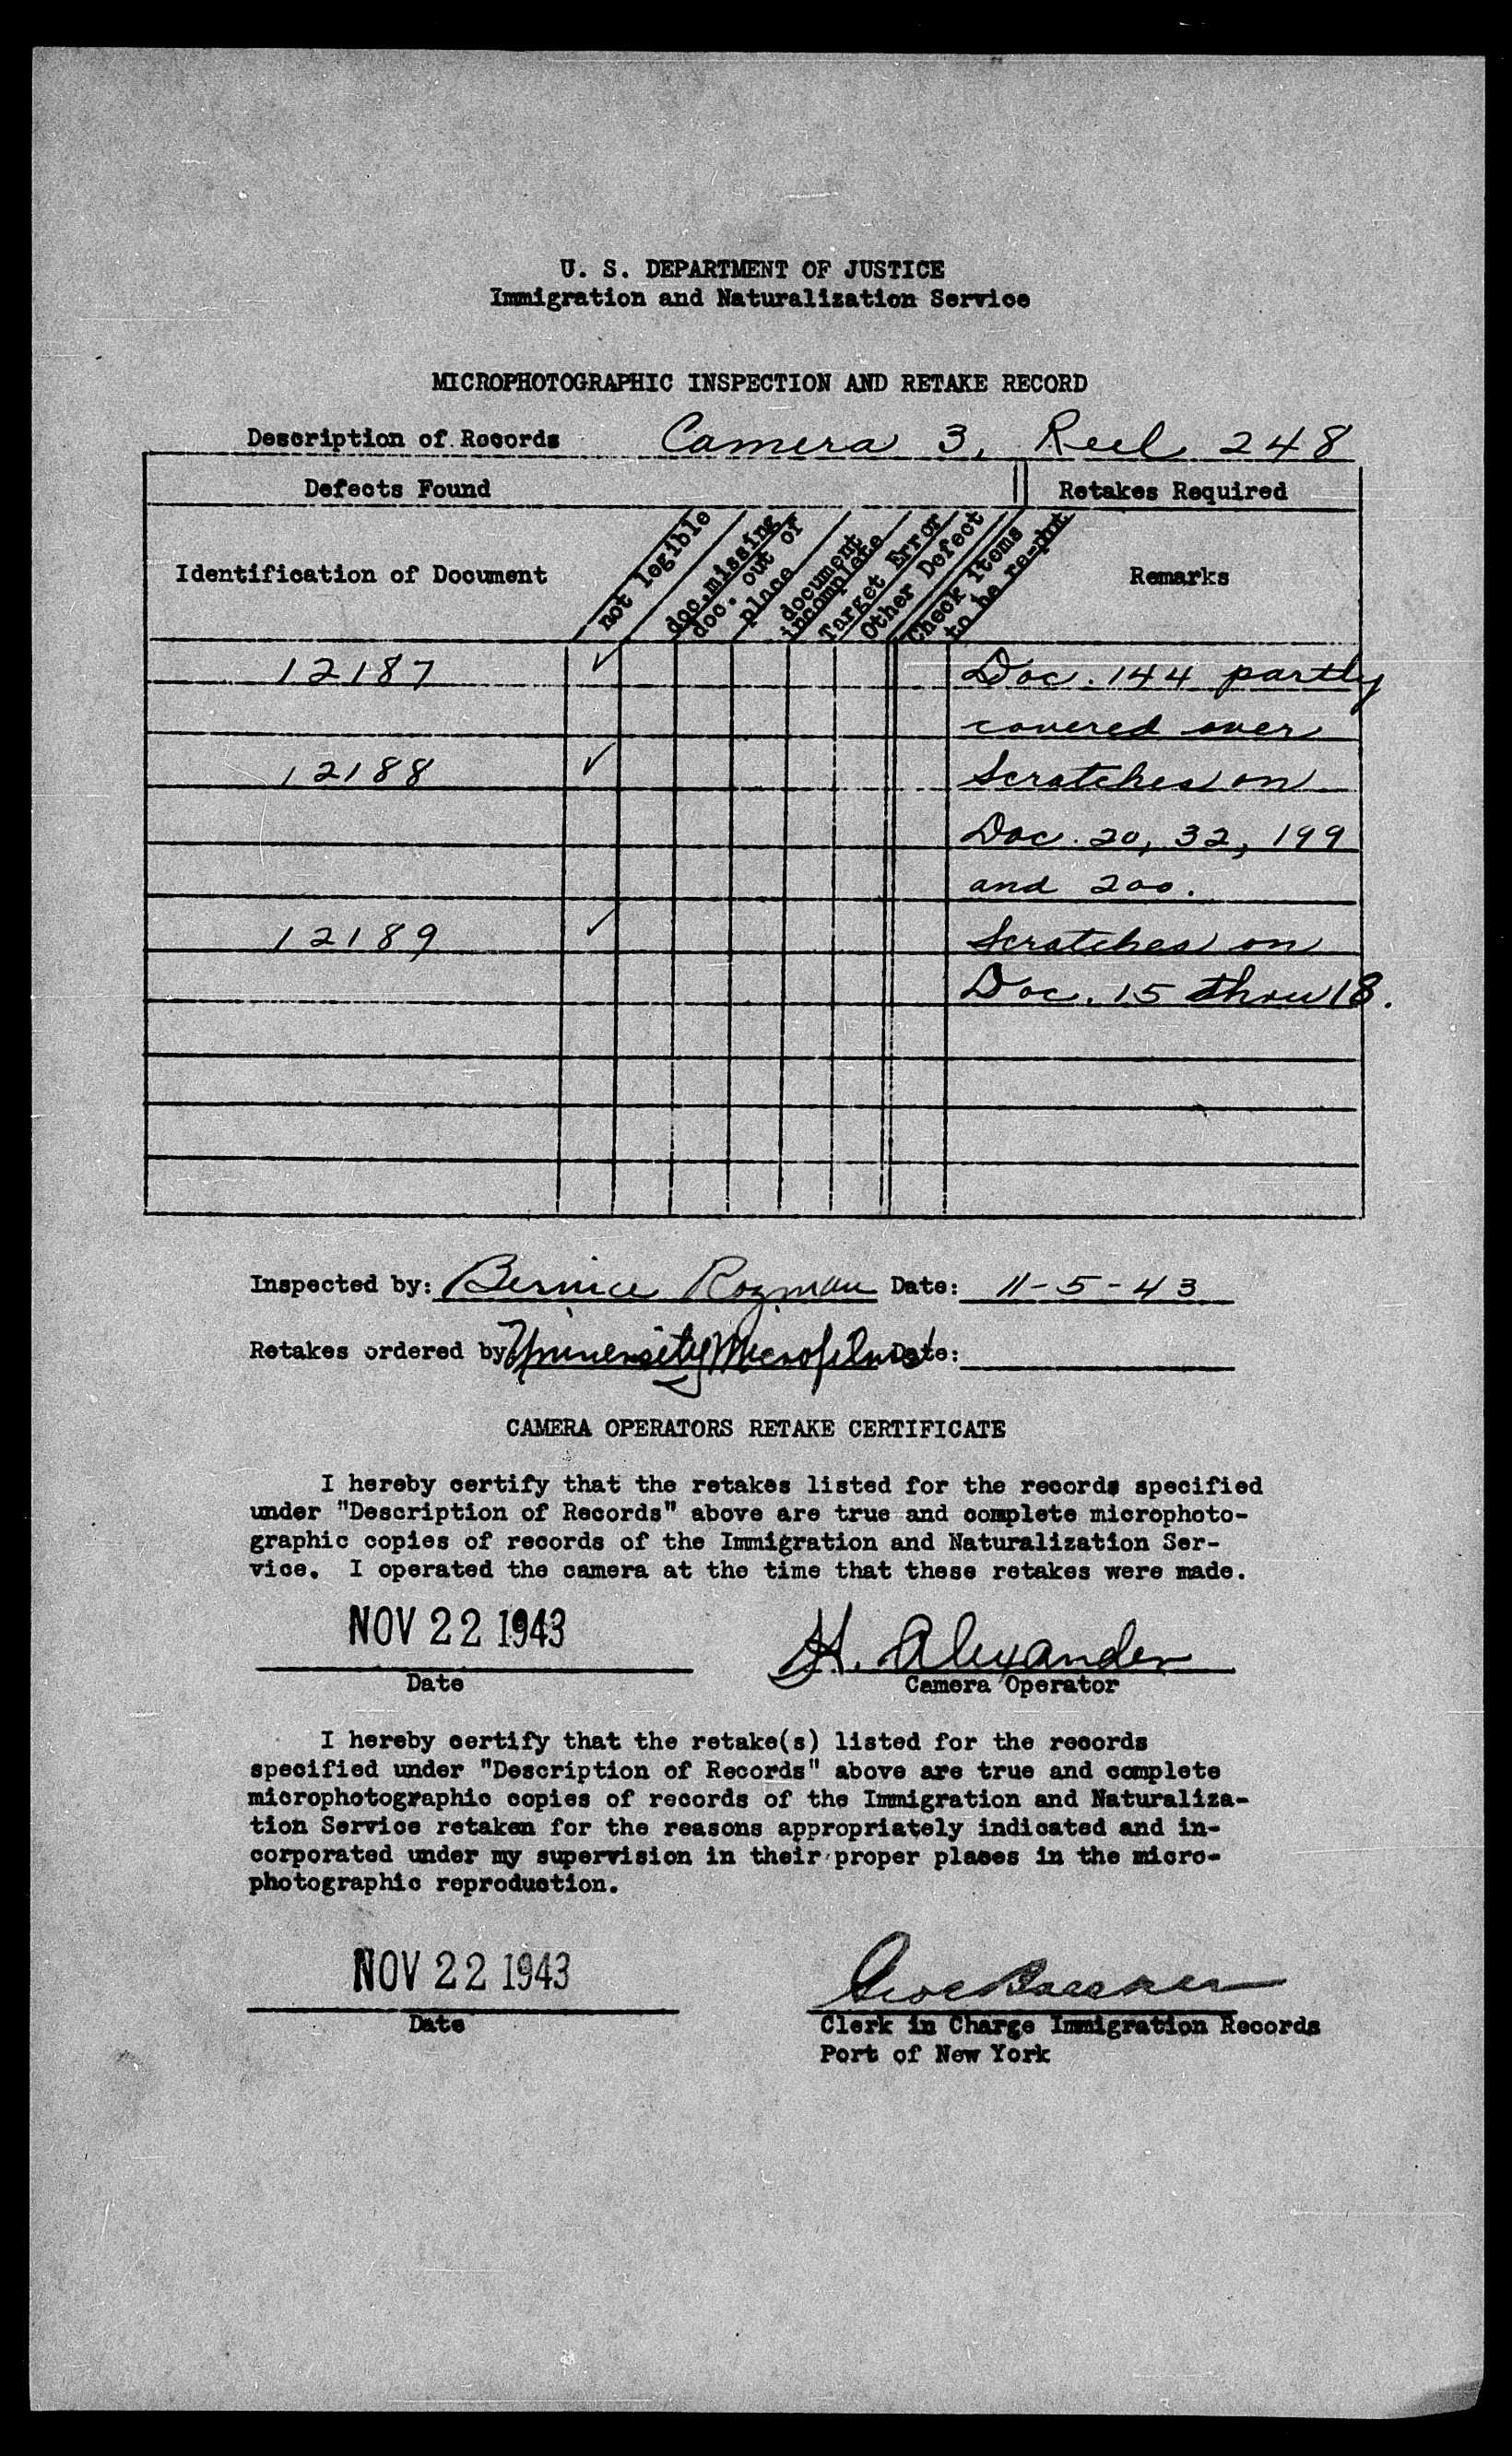 U. S. DEPARTMENT OF JUSTICE
Immigration and Naturalization Service
MICROPHOTOGRAPHIC INSPECTION AND RETAKE RECORD
Description of Records Camera 3, Reel 248
Defects Found Retakes Required
Identification of Document
not legible
doc. missing
doc. out of
place
document
incomplete
Target Error
Other Defect
Check items
to be re-phot
Remarks
12187 ✓ Doc. 144 partly
covered over
12188 ✓ Scratches on
Doc. 20, 32, 199
and 200.
12189 ✓ Scratches on
Doc. 15 thru 18.
Inspected by: Bernice Rozman Date: 11-5-43
Retakes ordered by University Microfilms Date:
CAMERA OPERATORS RETAKE CERTIFICATE
I hereby certify that the retakes listed for the records specified
under "Description of Records" above are true and complete microphoto-
graphic copies of records of the Immigration and Naturalization Ser-
vice. I operated the camera at the time that these retakes were made.
NOV 22 1943 H. Alexander
Date Camera Operator
I hereby certify that the retake(s) listed for the records
specified under "Description of Records" above are true and complete
microphotographic copies of records of the Immigration and Naturaliza-
tion Service retaken for the reasons appropriately indicated and in-
corporated under my supervision in their proper places in the micro-
photographic reproduction.
NOV 22 1943
Date Clerk in Charge Immigration Records
Port of New York